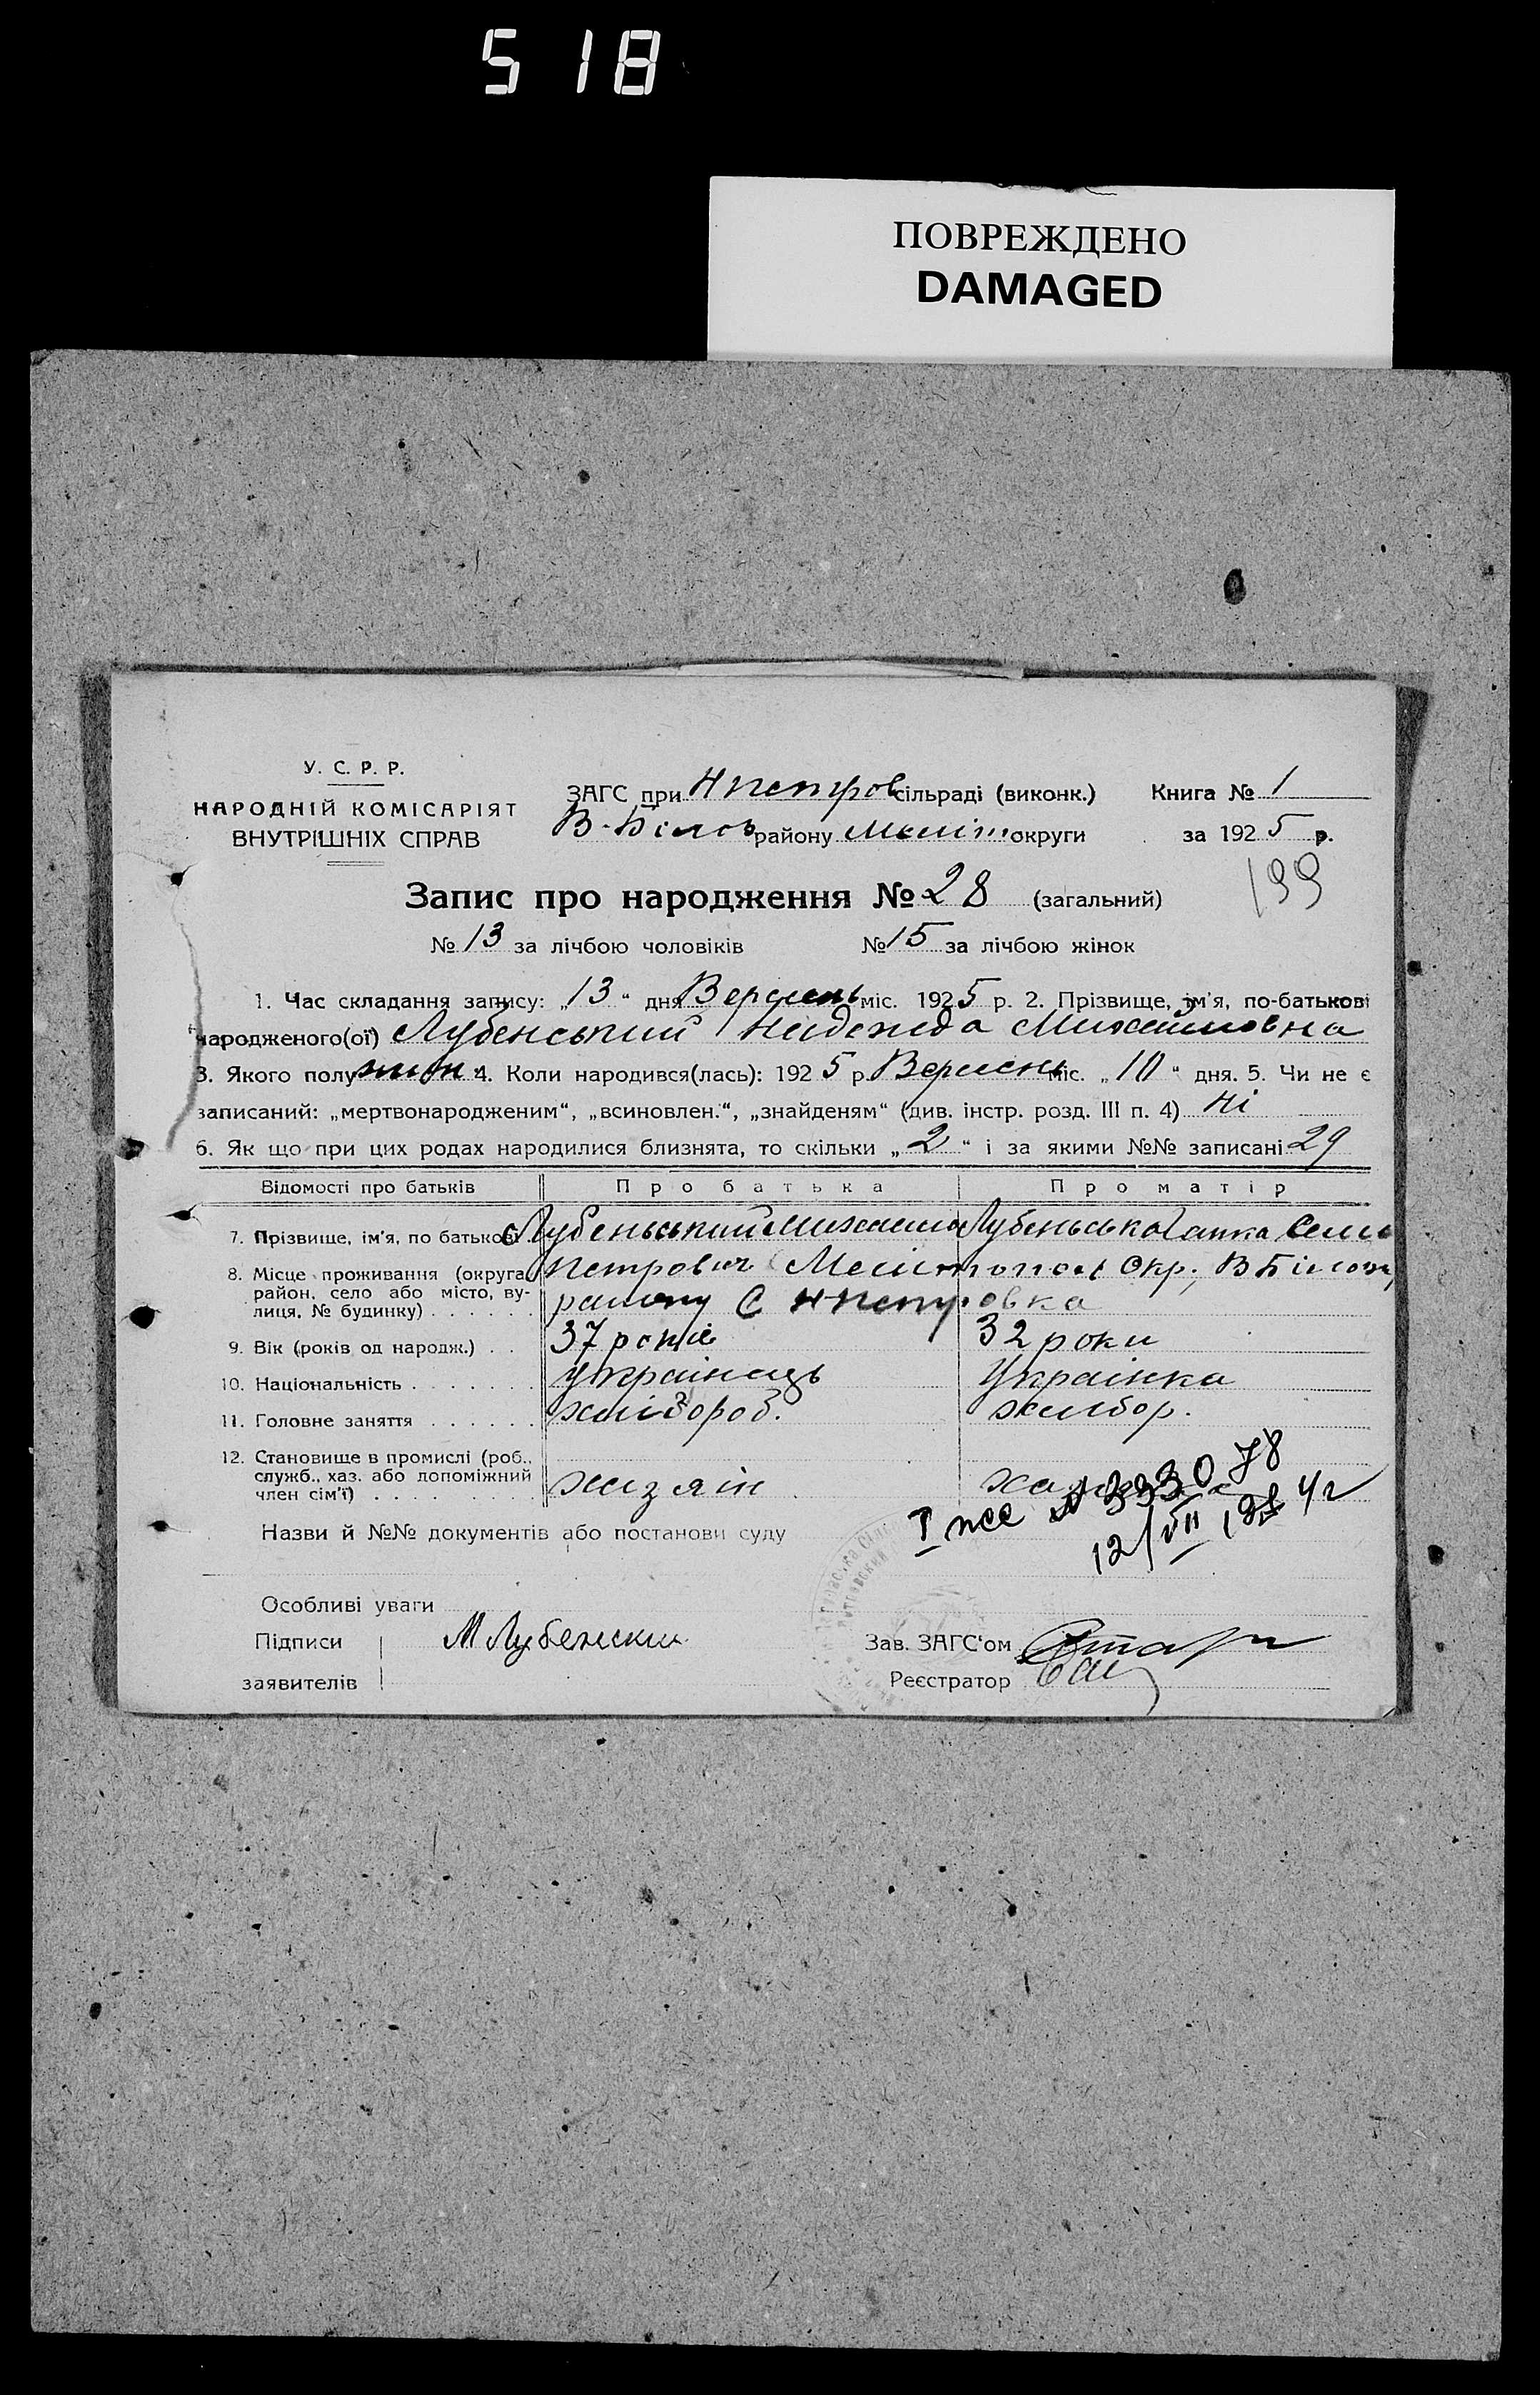 518
ПОВРЕЖДЕНО
DAMAGED
У. С. Р. Р.
НАРОДНІЙ КОМІСАРІЯТ
ВНУТРІШНІХ СПРАВ
ЗАГС при Нпетров сільраді (виконк.) Книга № 1
В-Білов району Меліт округи за 1925 р.
199
Запис про народження № 28 (загальний)
№ 13 за лічбою чоловіків № 15 за лічбою жінок
1. Час складання запису: „13“ дня Вересень міс. 1925 р. 2. Прізвище, ім'я, по-батькові
народженого(ої) Лубенський Надежда Михайловна
3. Якого полу жін. 4. Коли народився(лась): 1925 р. Вересень міс. „10“ дня. 5. Чи не є
записаний: „мертвонародженим“, „всиновлен.“, „знайденям“ (див. інстр. розд. III п. 4) Ні
6. Як що при цих родах народилися близнята, то скільки „2“ і за якими №№ записані 29
Відомості про батьків Про батька Про матір
7. Прізвище, ім'я, по батькові Лубенський Михаило Лубенська Ганна Семе
8. Місце проживання (округа, Петрович Мелітопол Окр., ВБілозі
район, село або місто, ву- району С Нпетровка
лиця, № будинку) . . . . .
9. Вік (років од народж.) . . 37 років 32 роки
10. Національність . . . . . . . Українець Українка
11. Головне заняття . . . . . . хлібороб. хлібор.
12. Становище в промислі (роб.,
служб., хаз. або допоміжний
член сім'ї) . . . . . . . . . хазяін
I 3330 78
12/VII 4г
Назви й №№ документів або постанови суду
Особливі уваги
Підписи МЛубенскии Зав. ЗАГС'ом
заявителів Реєстратор